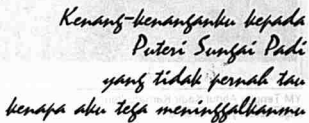 Kenang-kenanganku kepada
Puteri Sungai Padi
yang tidak pernah tau
kenapa aku tega meninggalkanmu